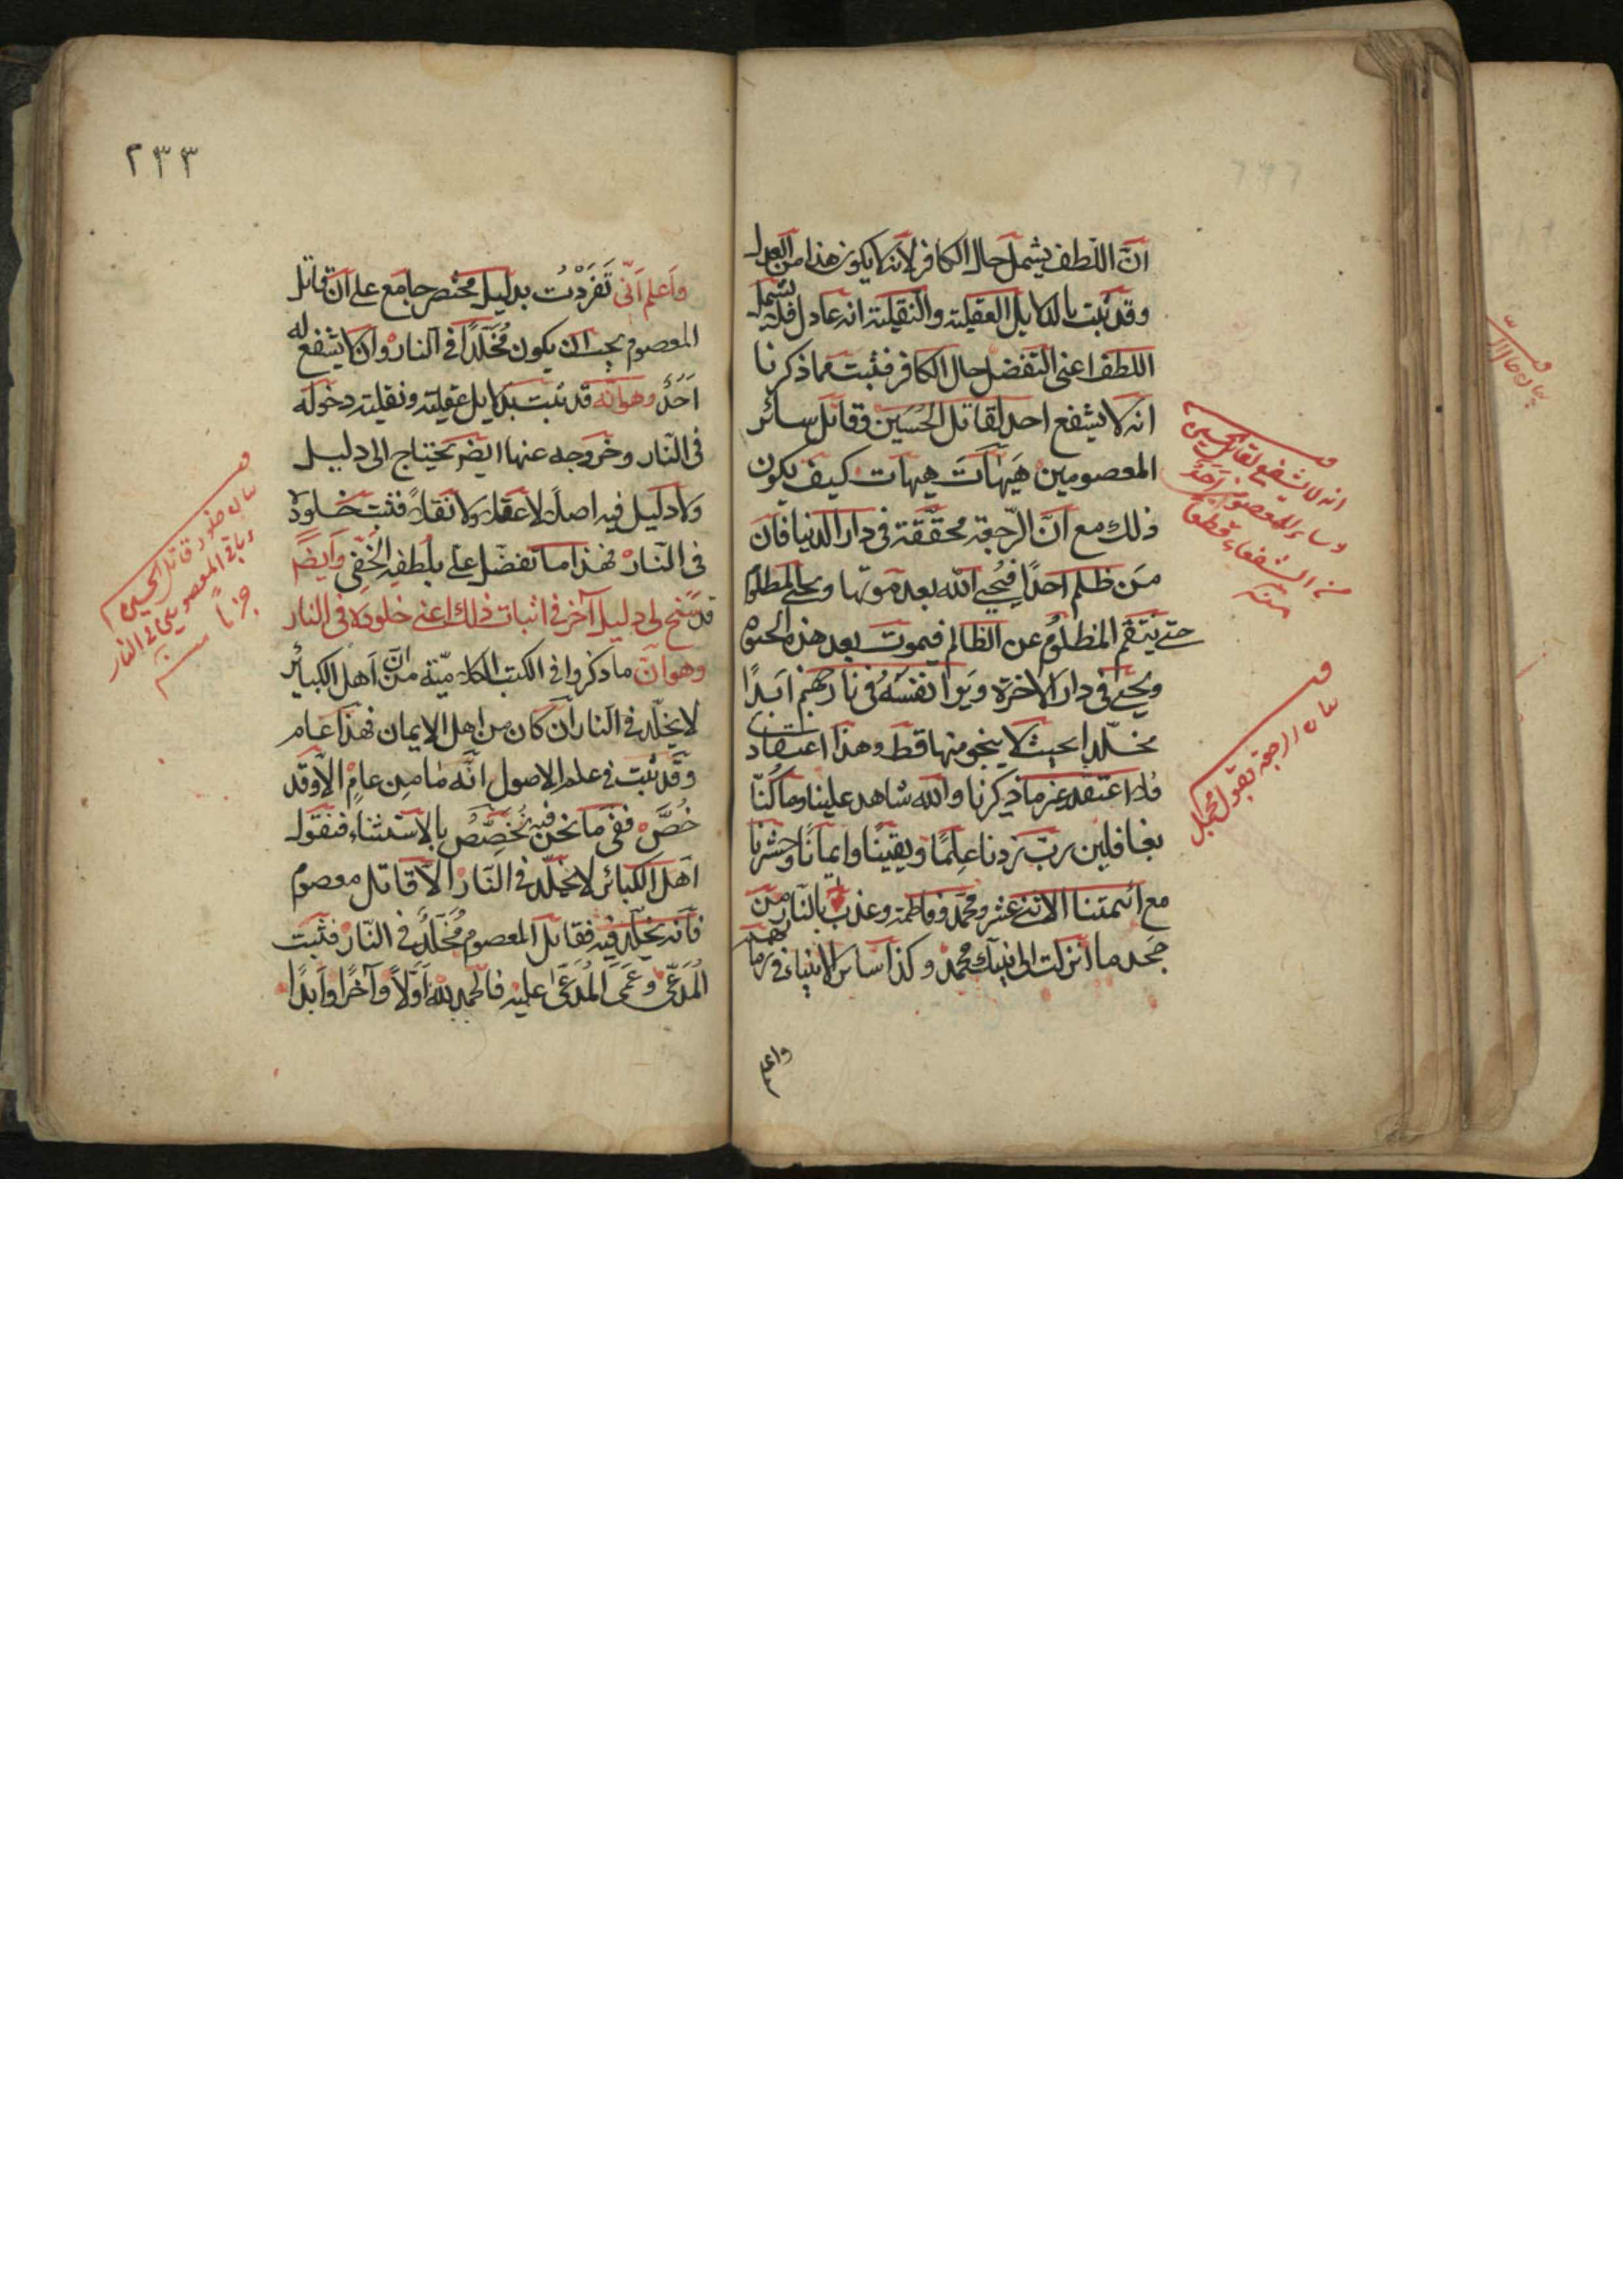 انّ اللّطف يشمل حال الكافر لانه لا يكون هذا من العدل
وقد ثبت بالدلايل العقلية والنقلية انه عادل فلا يشمل
اللطف اعنى التفضل حال الكافر فثبت مما ذكرنا
انه لا يشفع احد لقاتل الحُسَين وقاتل سائر
المعصومين هَيهَاتَ هيهات كيف يكون
ذلك مع انّ الرّجعة محقّقة فى دار الدنيا فان
مَن ظلم احدًا فيُحيى الله بعد موتها ويحيى المظلوم
حتى ينتقم المظلوم عن الظالم فيموت بعد هذه الحيوة
ويحيى فى دار الاخرة ويَرَوا نفسَهُ فى نار جهنم ابدًا
مخلّدا بحيث لا ينجو منها قط وهذا اعتقادى
ما ذكرنا والله شاهد علينا وما كُنّا
بغافلين ربّ زدنا علمًا ويقينًا وايمانًا وحشرنا
مع ائمتنا الاثنى عشر ومحمّد وفاطمة وعذب بالنار من
جحد ما انزلت الى نبيك محمد وكذا سائر الانبياء فى زمانهم
واعلم
انه لا يشفع لقاتل الحسين
وساير المعصوم احَدٌ
من الشفعاء قطعا
منه
بيان الرجعة بقول مجمل
٢٣٣
وَاعلم انّى تَفَرّدْتُ بدليل مختصر جامع على ان قاتل
المعصوم يجب ان يكون مُخَلّدًا فى النار وان لا يشفع له
اَحَدٌ وهو انّه قد ثبت بدلايل عقلية ونقلية دخوله
فى النّار وخروجه عنها ايضا يحتاج الى دليل
ولا دليل فيه اصلاً لا عقلاً ولا نقلاً فثبت خلوده
فى النّار فهذا ما تفضّل علىّ بلطفه الخَفِى وَايضًا
قد سنح لى دليل آخر فى اثبات ذلك اعنى خلوده فى النار
وهو انّ ما ذكروا فى الكتب الكلاميّة من انّ اهل الكبائر
لا يخلّد فى النار ان كان من اهل الايمان فهذا عام
وقد ثبت فى علم الاصول انّه ما مِن عامٍ الاّ وقد
خُصّ ففى مَا نحن فيه نُخصِّصُ بالاستثناء فنقول
اهل الكبائر لا يخلّد فى النّار الاّ قاتل معصوم
فانه يخلّد فيه فقاتل المعصوم مُخَلّدٌ فى النّار فثبت
المُدّعى وعَمَى المُدّعَى عليه فالحمد لله اَوّلاً وآخرًا وابدًا
بيان خلود قاتل الحسين
وباقى المعصومين فى النار
جزما